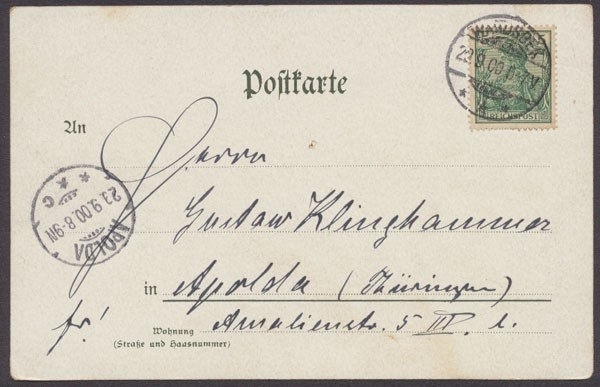 Postkarte
REICHSPOST
An
Herrn
Gustav Klinghammer
APOLDA
23.9.00.8-9N
C
in Apolda (Thüringen)
fr!
Wohnung
(Straße und Hausnummer)
Amalienstr. 5 III. l.